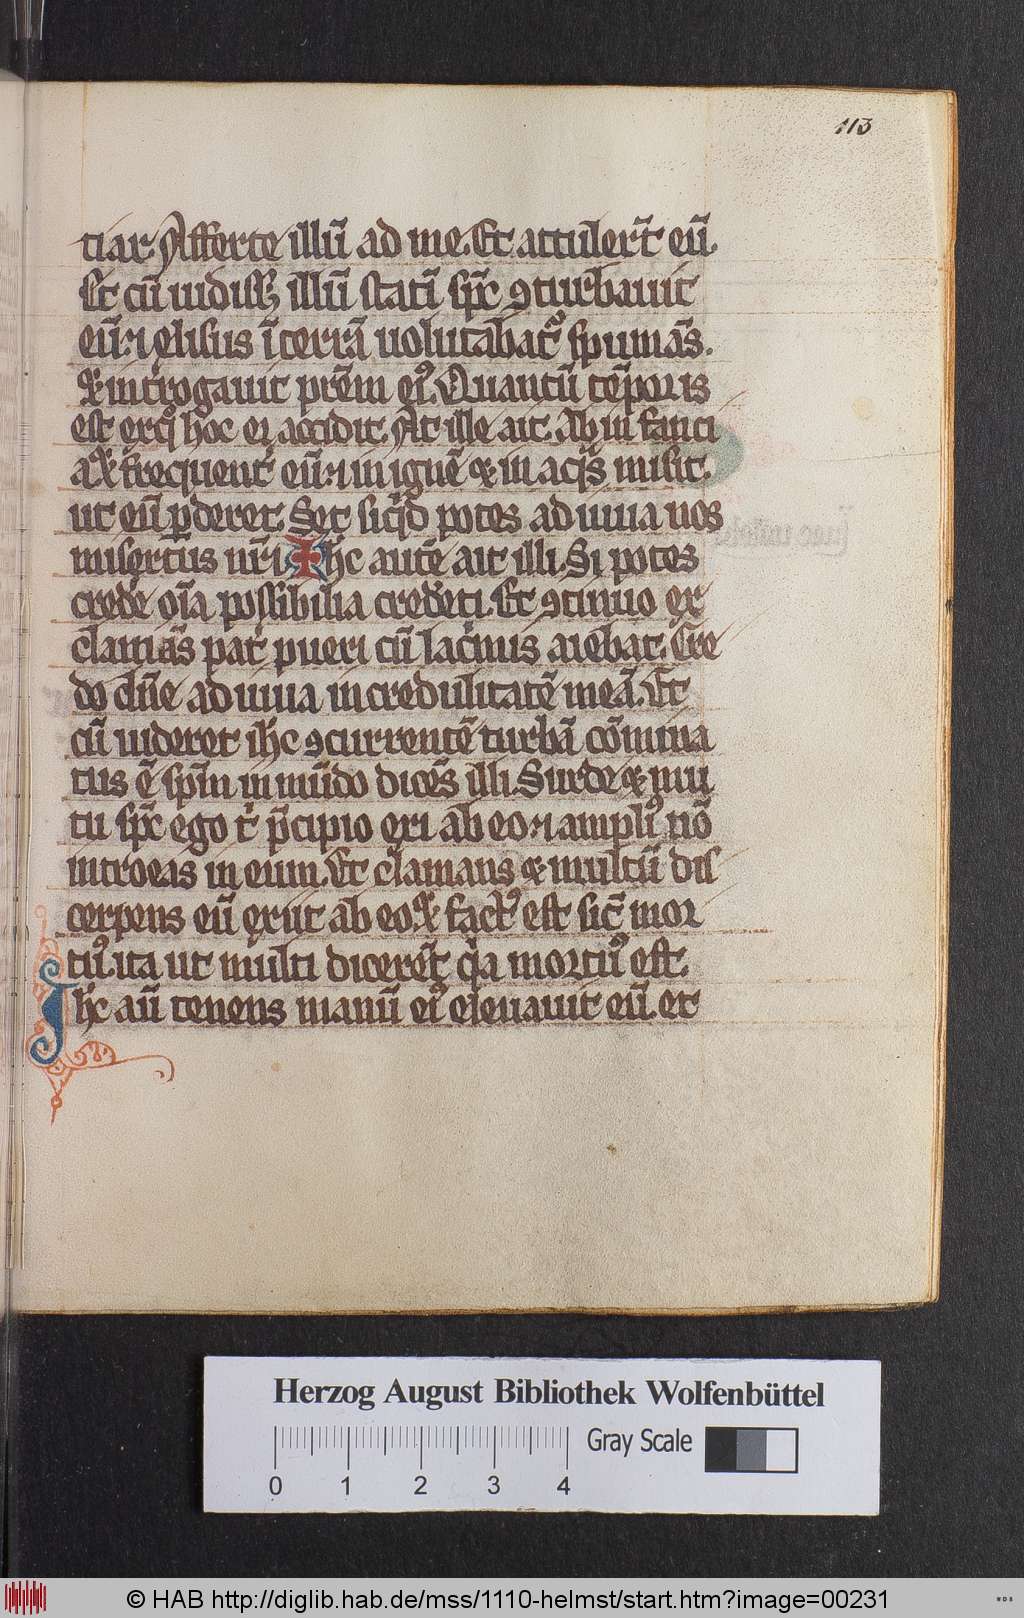 113
tiar. Afferte illū ad me. Et attuler̄t eū.
Et cū uidiss; illū statī sp̄c ꝯturbauit
eū. ⁊ elisus ī terrā uolutabat᷒ spumās.
⁊ int̄rogauit pr̄em eiꝰ. Quantū tēporis
est ex q̊ hoc ei accidit. At ille ait. Ab infanci
a. ⁊ frequent̄ eū. ⁊ in ignē ⁊ in aq̄s misit.
ut eū ꝑderet. Set siq̇d potes adiuua nos
misert᷒us nr̄i. Ih̄c autē ait illi. Si potes
cred̄e oīa possibilia cred̄eti. Et ꝯtinuo ex
clamās pat̄ pueri cū lac̄mis aiebat. Cre
do dn̄e adiuua incredulitatē meā. Et
cū uideret ih̄c ꝯcurrentē turbā cōmina
tus ē sp̄m inmūdo dicēs illi. Surde ⁊ mu
tu sp̄c ego t̄ p̄cipio exi ab eo. ⁊ ampliꝰ nō
introeas in eum. Et clamans ⁊ multū dis
cerpens eū exiit ab eo. ⁊ factꝰ est sic̄ mor
tuꝰ. ita ut multi dicerēt q̄a mortuꝰ est.
Ih̄c aū tenens manū eiꝰ eleuauit eū. et
Herzog August Bibliothek Wolfenbüttel
Gray Scale
0 1 2 3 4
© HAB http://diglib.hab.de/mss/1110-helmst/start.htm?image=00231